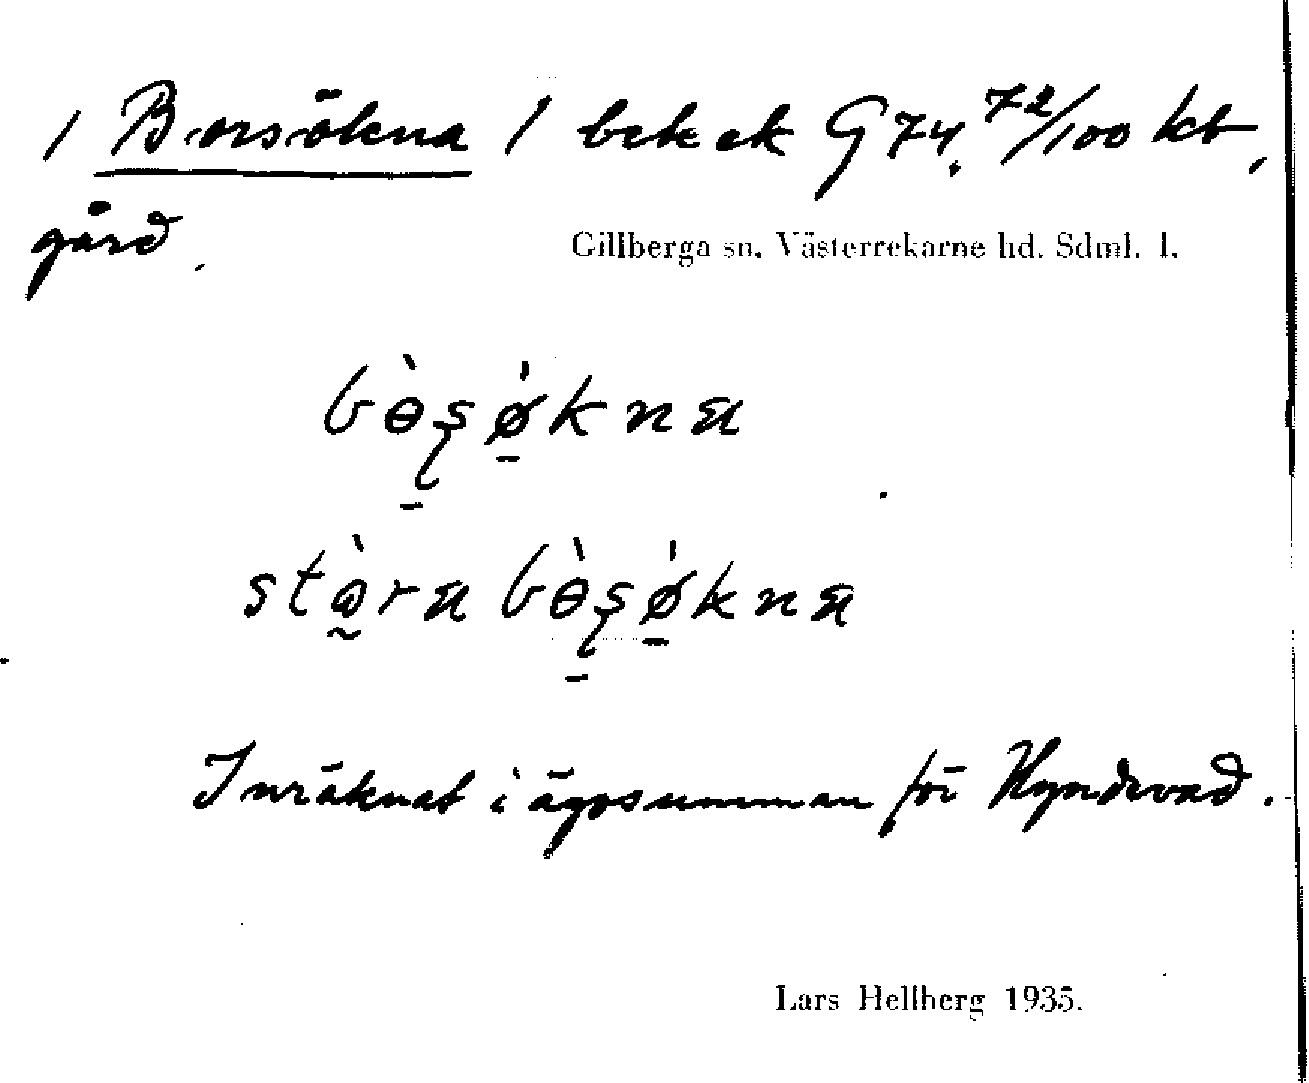 / Borsökna / bebck G 74. 72/100 kt,
gård.
Gillberga sn. Västerrekarne hd. Sdml. l.
bɵ̀ʂø̀kna
stɷ̀ra bɵ̀ʂø̀kna
Inräknat i ägosumman för Hyndevad.
Lars Hellberg 1935.